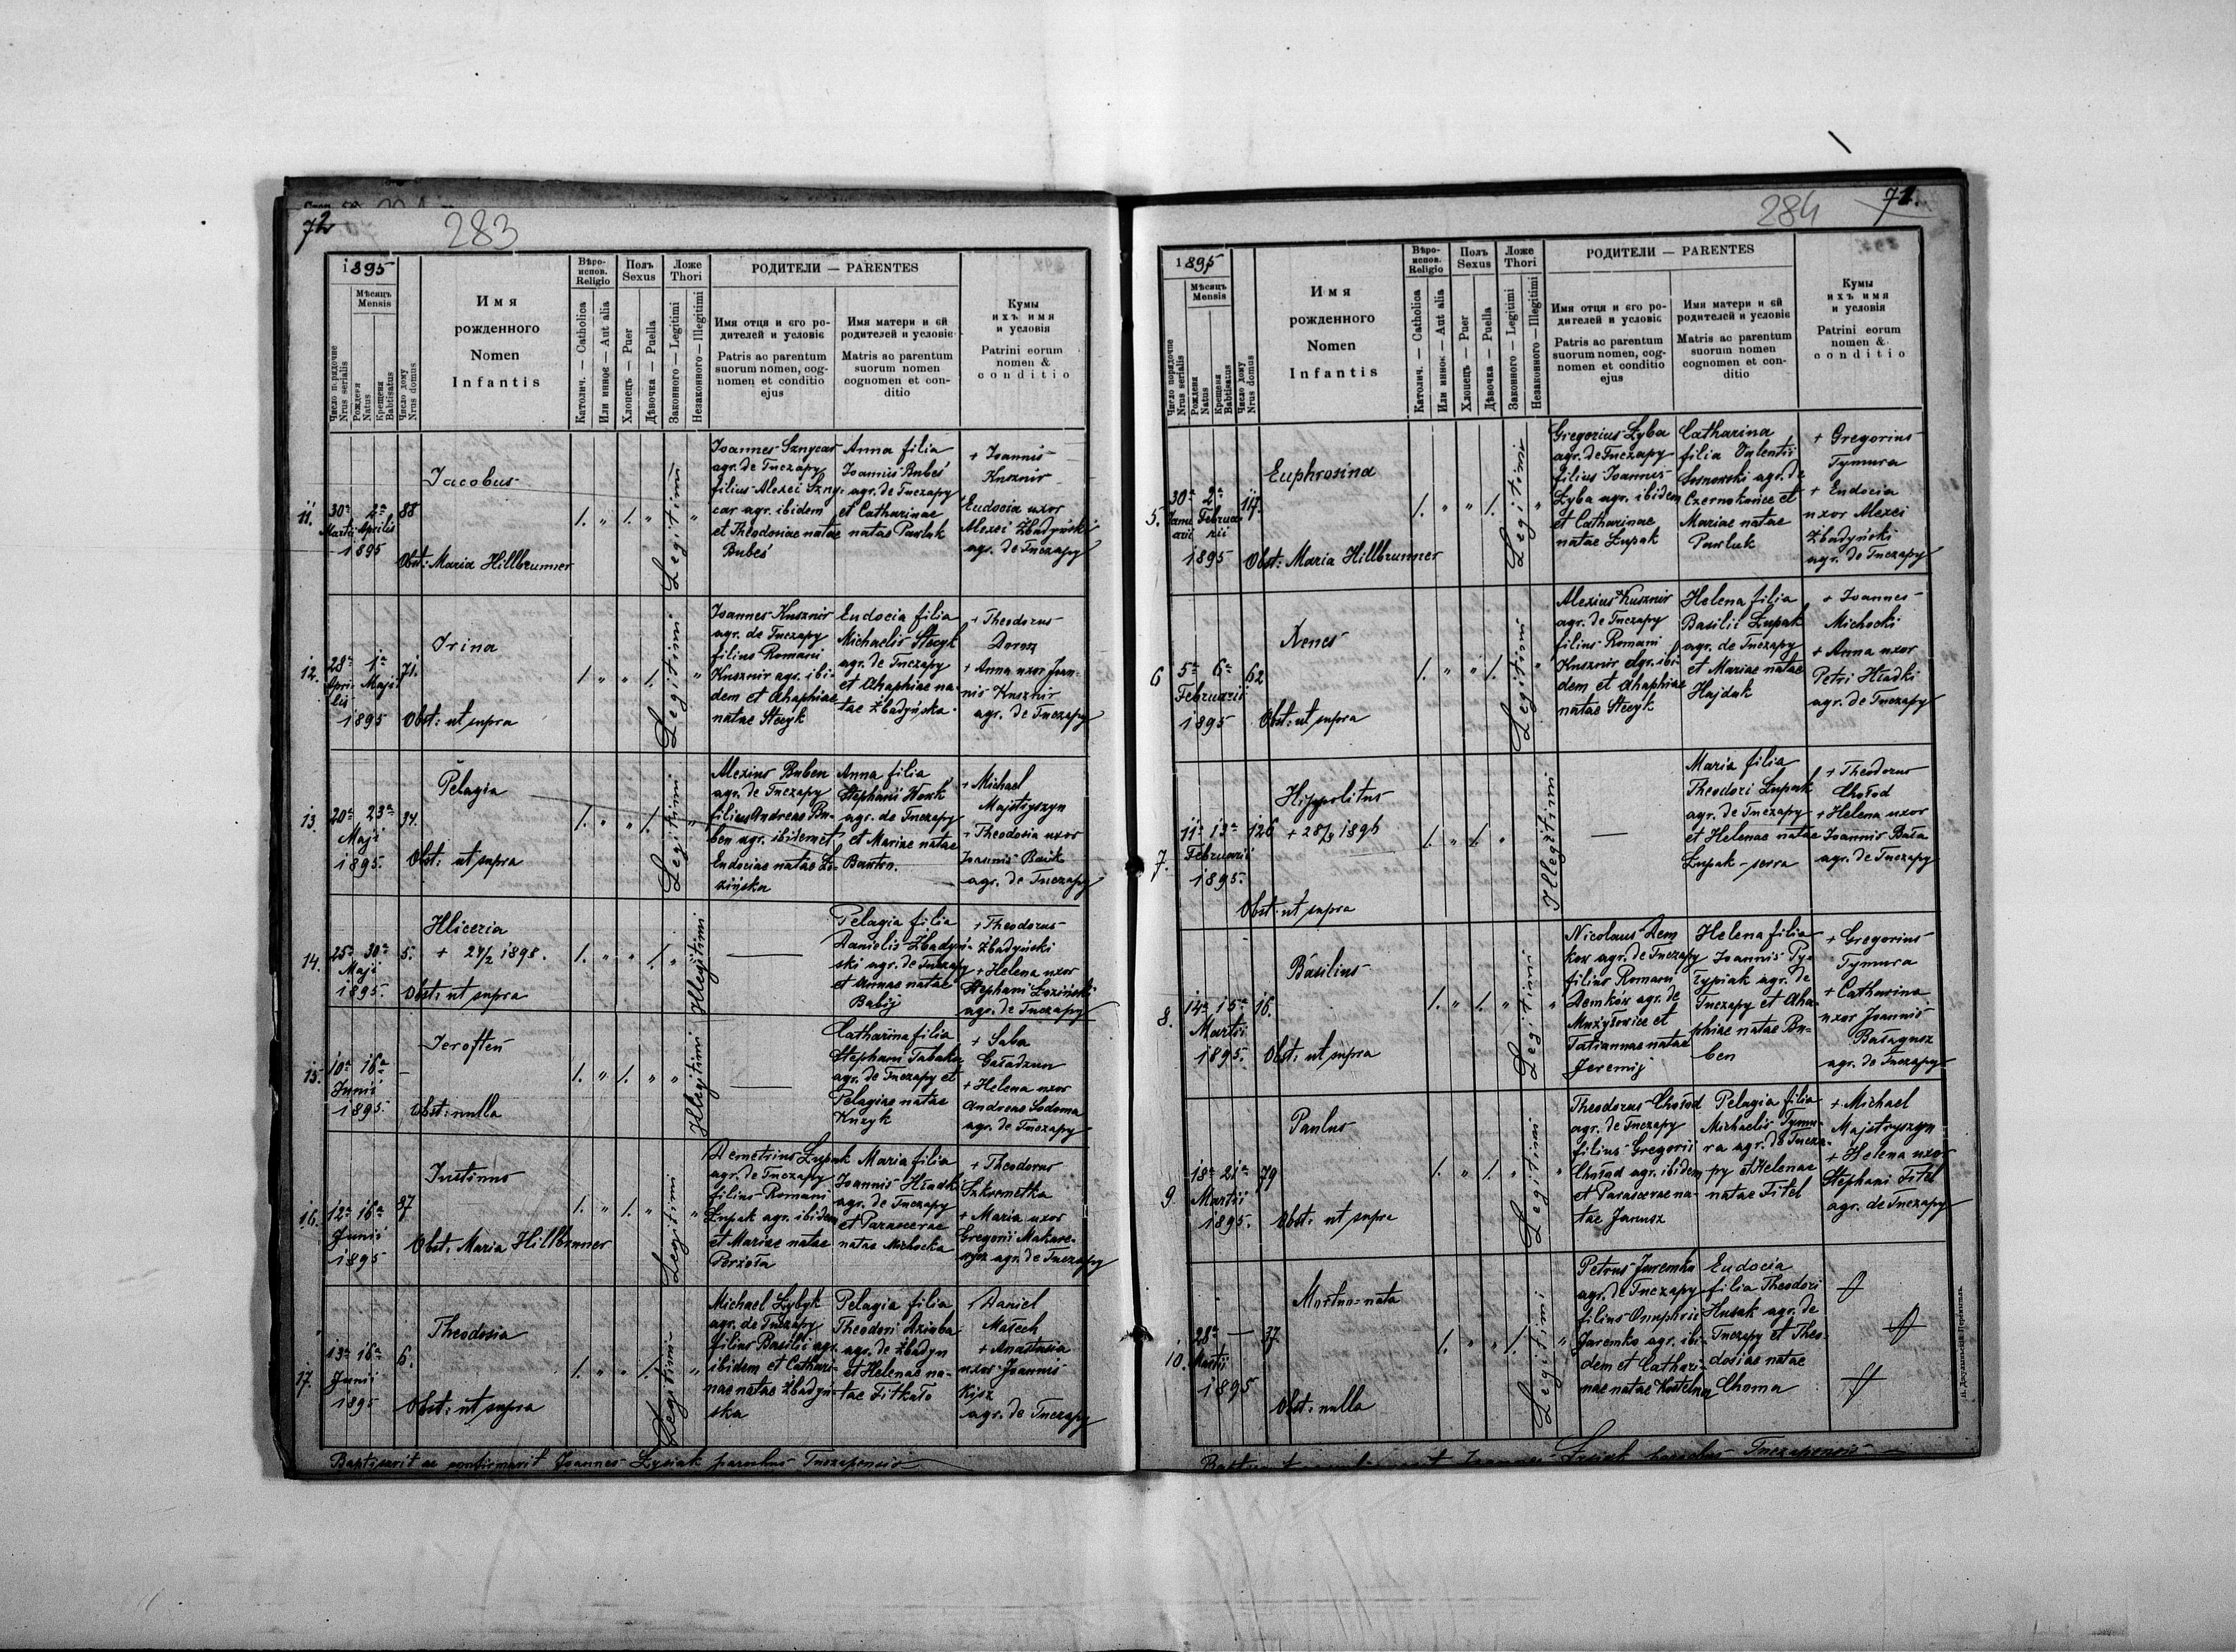 72
283
1895
Мѣсяць
Mensis
Число порядочне
Nrus serialis
Рожденя
Natus
Крещеня
Babtisatus
Число дому
Nrus domus
Имя
рожденного
Nomen
Infantis
Вѣро-
испов.
Religio
Католич. — Catholica
Или инное — Aut alia
Полъ
Sexus
Хлопець — Puer
Дѣвочка — Puella
Ложе
Thori
Законного — Legitimi
Незаконного — Illegitimi
РОДИТЕЛИ — PARENTES
Имя отця и єго ро-
дителей и условіє
Patris ac parentum
suorum nomen, cog-
nomen et conditio
ejus
Имя матери и єй
родителей и условіє
Matris ac parentum
suorum nomen
cognomen et con-
ditio
Кумы
ихъ имя
и условія
Patrini eorum
nomen &
conditio
11.
30ª 2ª
Martii Aprilis
1895
88
Jacobus
Obst: Maria Hillbrunner
1. „ 1. „
Legitimi
„
Joannes Sznycar
agr. de Tuczapy
filius Alexei Szny-
car agr. ibidem
et Theodosiae natae
Bubeś
Anna filia
Joannis Bubeś
agr. de Tuczapy
et Catharinae
natae Pawluk
+ Joannis
Kusznir
+ Eudocia uxor
Alexei Zbadyński
agr. de Tuczapy
12.
28ª 1ª
Apri- Maji
lis
1895
71.
Irina
Obst: ut supra
1. „ „ 1.
Legitimi
„
Joannes Kusznir
agr. de Tuczapy
filius Romani
Kusznir agr. ibi-
dem et Ahaphiae
natae Stecyk
Eudocia filia
Michaelis Stecyk
agr. de Tuczapy
et Ahaphiae na-
tae Zbadyńska
+ Theodorus
Dorosz
+ Anna uxor Joan-
nis Kusznir
agr. de Tuczapy
13.
20ª 23ª
Maji
1895.
94.
Pelagia
Obst: ut supra
1. „ „ 1.
Legitimi
„
Alexius Buben
agr. de Tuczapy
filius Andreae Bu-
ben agr. ibidem et
Eudociae natae Ło-
zińska
Anna filia
Stephani Wowk
agr. de Tuczapy
et Mariae natae
Banton.
+ Michael
Majstryszyn
+ Theodosia uxor
Joannis Basik
agr. de Tuczapy
14.
25ª 30ª
Maji
1895.
5.
Hliceria
+ 27/2 1898.
Obst: ut supra
1. „ „ 1. „
Illegitimi
—
Pelagia filia
Danielis Zbadyń-
ski agr. de Tuczapy
et Annae natae
Babij
+ Theodorus
Zbadyński
+ Helena uxor
Stephani Łoziński
agr. de Tuczapy
15.
10ª 16ª
Junii
1895.
—
Jeroftei
Obst: nulla
1. „ 1. „ „
Illegitimi
—
Catharina filia
Stephani Tabaka
agr. de Tuczapy et
Pelagiae natae
Kuzyk
+ Saba
Gaładzun
+ Helena uxor
Andreae Sodoma
agr. de Tuczapy
16.
12ª 16ª
Junii
1895
87
Justinus
Obst: Maria Hillbrunner
1. „ 1. „
Legitimi
„
Demetrius Łupak
agr. de Tuczapy
filius Romani
Łupak agr. ibidem
et Mariae natae
Perzoła
Maria filia
Joannis Hładki
agr. de Tuczapy
et Parascevae
natae Michocka
+ Theodorus
Szkrometka
+ Maria uxor
Gregorii Makare-
wycz agr. de Tuczapy
17.
13ª 16ª
Junii
1895
6.
Theodosia
Obst: ut supra
1. „ „ 1.
Legitimi
„
Michael Łybyk
agr. de Tuczapy
filius Basilii agr.
ibidem et Cathari-
nae natae Zbadyń-
ska
Pelagia filia
Theodori Dziuba
agr. de Zbadyn
et Helenae na-
tae Fitkało
+ Daniel
Małech
+ Anastasia
uxor Joannis
Kijsz
agr. de Tuczapy
Baptisavit ac confirmavit Joannes Łysiak parochus Tuczapensis
284
71.
1895
Мѣсяць
Mensis
Число порядочне
Nrus serialis
Рожденя
Natus
Крещеня
Babtisatus
Число дому
Nrus domus
Имя
рожденного
Nomen
Infantis
Вѣро-
испов.
Religio
Католич. — Catholica
Или инное — Aut alia
Полъ
Sexus
Хлопець — Puer
Дѣвочка — Puella
Ложе
Thori
Законного — Legitimi
Незаконного — Illegitimi
РОДИТЕЛИ — PARENTES
Имя отця и єго ро-
дителей и условіє
Patris ac parentum
suorum nomen, cog-
nomen et conditio
ejus
Имя матери и єй
родителей и условіє
Matris ac parentum
suorum nomen
cognomen et con-
ditio
Кумы
ихъ имя
и условія
Patrini eorum
nomen &
conditio
5.
30ª 2ª
Janu- Februa-
arii rii
1895
117.
Euphrosina
Obst: Maria Hillbrunner
1. „ „ 1.
Legitimi
„
Gregorius Łyba
agr. de Tuczapy
filius Joannis
Łyba agr. ibidem
et Catharinae
natae Łupak
Catharina
filia Valentii
Sosnowski agr. de
Czernokońce et
Mariae natae
Pawluk
+ Gregorius
Tymura
+ Eudocia
uxor Alexei
Zbadyński
agr. de Tuczapy
6
5ª 6ª
Februarii
1895
62
Xenes
Obst: ut supra
1. „ „ 1.
Legitimi
„
Alexius Kusznir
agr. de Tuczapy
filius Romani
Kusznir agr. ibi-
dem et Ahaphiae
natae Stecyk
Helena filia
Basilii Łupak
agr. de Tuczapy
et Mariae natae
Hajduk
+ Joannes
Michocki
+ Anna uxor
Petri Hładki
agr. de Tuczapy
7.
11ª 13ª
Februarii
1895.
126
Hippolitus
+ 28/3 1896
Obst: ut supra
1. „ 1. „
Illegitimi
—
Maria filia
Theodori Łupak
agr. de Tuczapy
et Helenae natae
Łupak – serva
+ Theodorus
Chołod
+ Helena uxor
Joannis Bała
agr. de Tuczapy
8.
14ª 15ª
Martii
1895.
16.
Basilius
Obst: ut supra
1. „ 1. „
Legitimi
„
Nicolaus Dem
kow agr. de Tuczapy
filius Romani
Demków agr. de
Mużyłowice et
Tatiannae natae
Jeremij
Helena filia
Joannis Py-
rypiak agr. de
Tuczapy et Aha-
phiae natae Bu-
ben
+ Gregorius
Tymura
+ Catharina
uxor Joannis
Bałagusz
agr. de Tuczapy
9.
18ª 21ª
Martii
1895.
79
Paulus
Obst: ut supra
1. „ 1. „
Legitimi
„
Theodorus Chołod
agr. de Tuczapy
filius Gregorii
Chołod agr. ibidem
et Parascevae na-
tae Janusz
Pelagia filia
Michaelis Tymu-
ra agr. de Tucza-
py et Helenae
natae Fitel
+ Michael
Majstryszyn
+ Helena uxor
Stephani Fitel
agr. de Tuczapy
10.
28ª —
Martii
1895
37
Mortuo=nata
Obst: nulla
1. „ „ 1.
Legitimi
„
Petrus Jaremko
agr. de Tuczapy
filius Onuphrii
Jaremko agr. ibi-
dem et Cathari-
nae natae Kostelna
Eudocia
filia Theodori
Husak agr. de
Tuczapy et Theo-
dosiae natae
Choma
Joannes Łysiak parochus Tuczapensis